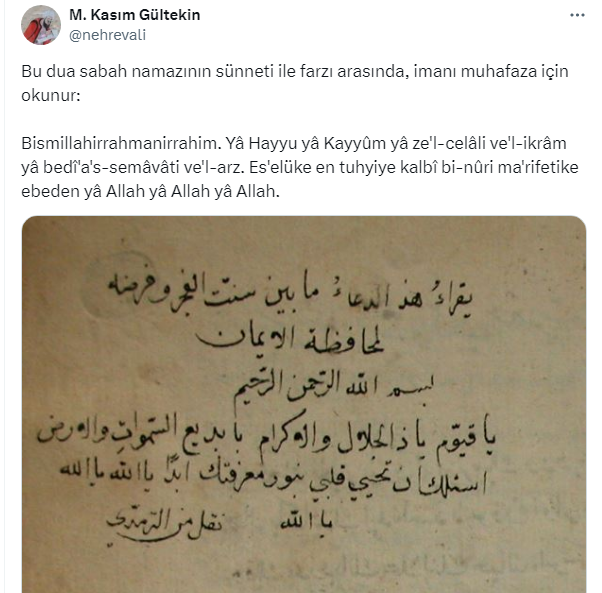 M. Kasım Gültekin
@nehrevali
Bu dua sabah namazının sünneti ile farzı arasında, imanı muhafaza için
okunur:
Bismillahirrahmanirrahim. Yâ Hayyu yâ Kayyûm yâ ze'l-celâli ve'l-ikrâm
yâ bedî'a's-semâvâti ve'l-arz. Es'elüke en tuhyiye kalbî bi-nûri ma'rifetike
ebeden yâ Allah yâ Allah yâ Allah.
يقراءُ هذ الدعاءُ ما بين سنّت الفجر وفرضه
لمحافظة الايمان
بسم الله الرّحمن الرّحيم
يا قيّوم يا ذالجلال والاكرام يا بديع السّموات والارض
اسئلك ان تحيي قلبي بنور معرفتك ابدًا يا الله يا الله
يا الله نقل من الترمذي